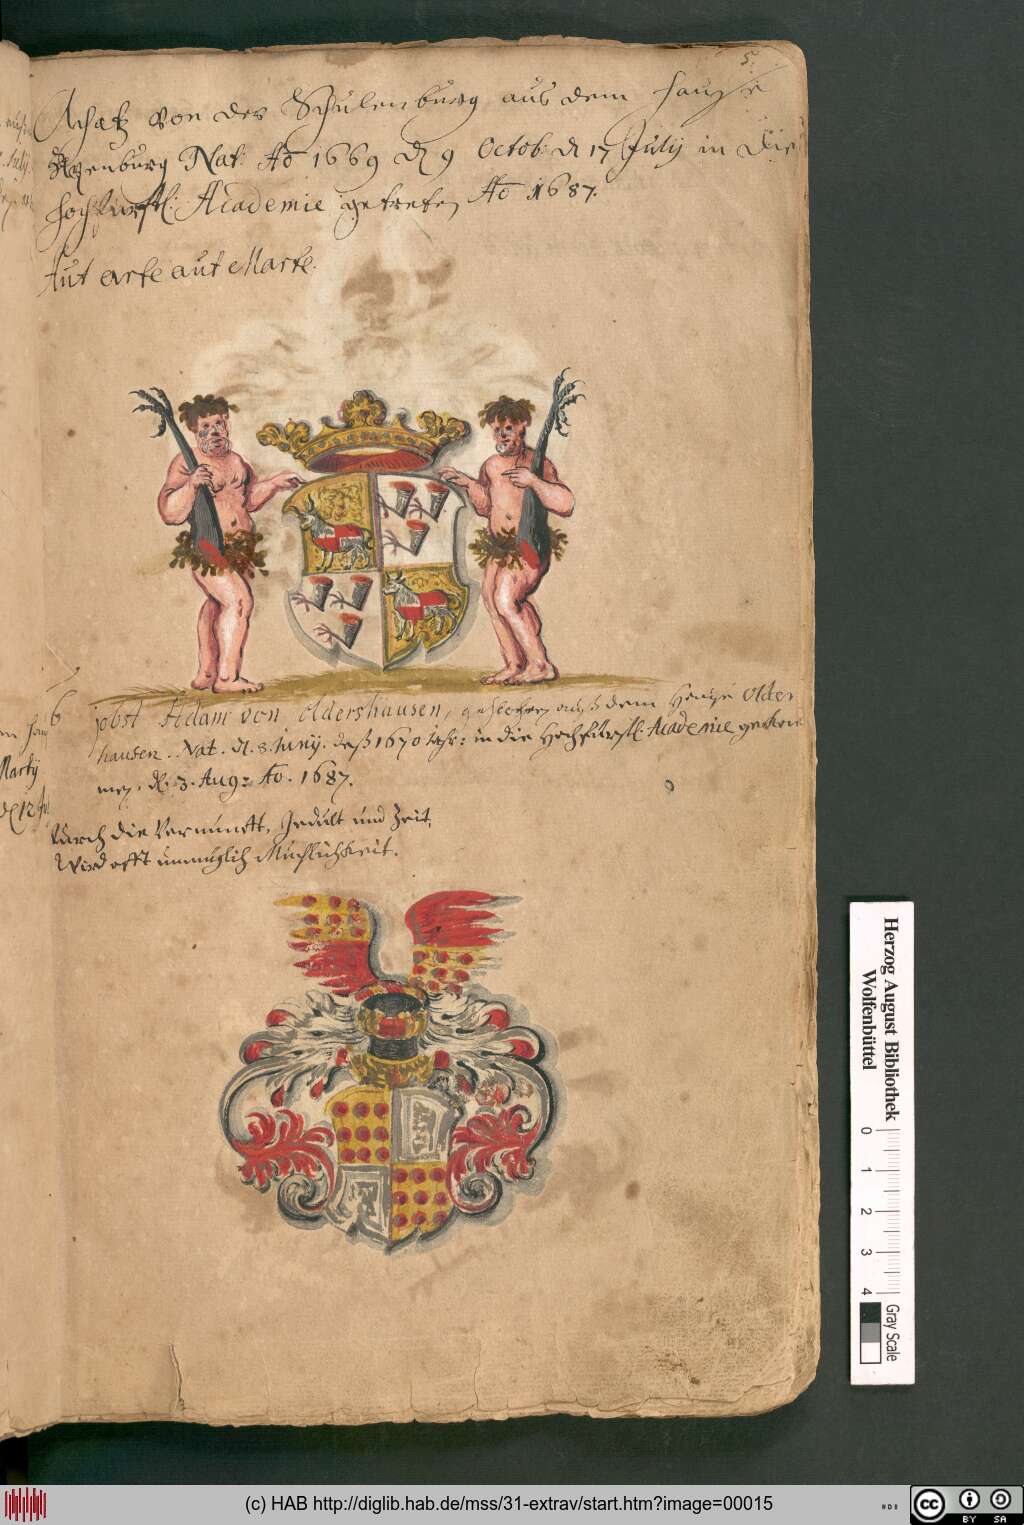 5.
Achatz von der Schulenburg aus dem Hause
Apenburg Nat: Aō 1669 d 9 Octob: d 17 Julij in die
Hochfürstl: Academie getreten Aō 1687.
Aut Arte aut Marte.
6
Jobst Adam von Oldershausen, auß dem Hause Older
hausen. Nat. d. 8. Junij. deß 1670 Jahr: in die Hochfürstl: Academie gekom
men, d. 3. Aug: Aō. 1687.
Durch die Vernunfft, Gedult und Zeit,
Wird offt unmüglich Müchlichkeit.
Herzog August Bibliothek
Wolfenbüttel
0 1 2 3 4
Gray Scale
(c) HAB http://diglib.hab.de/mss/31-extrav/start.htm?image=00015
cc BY SA